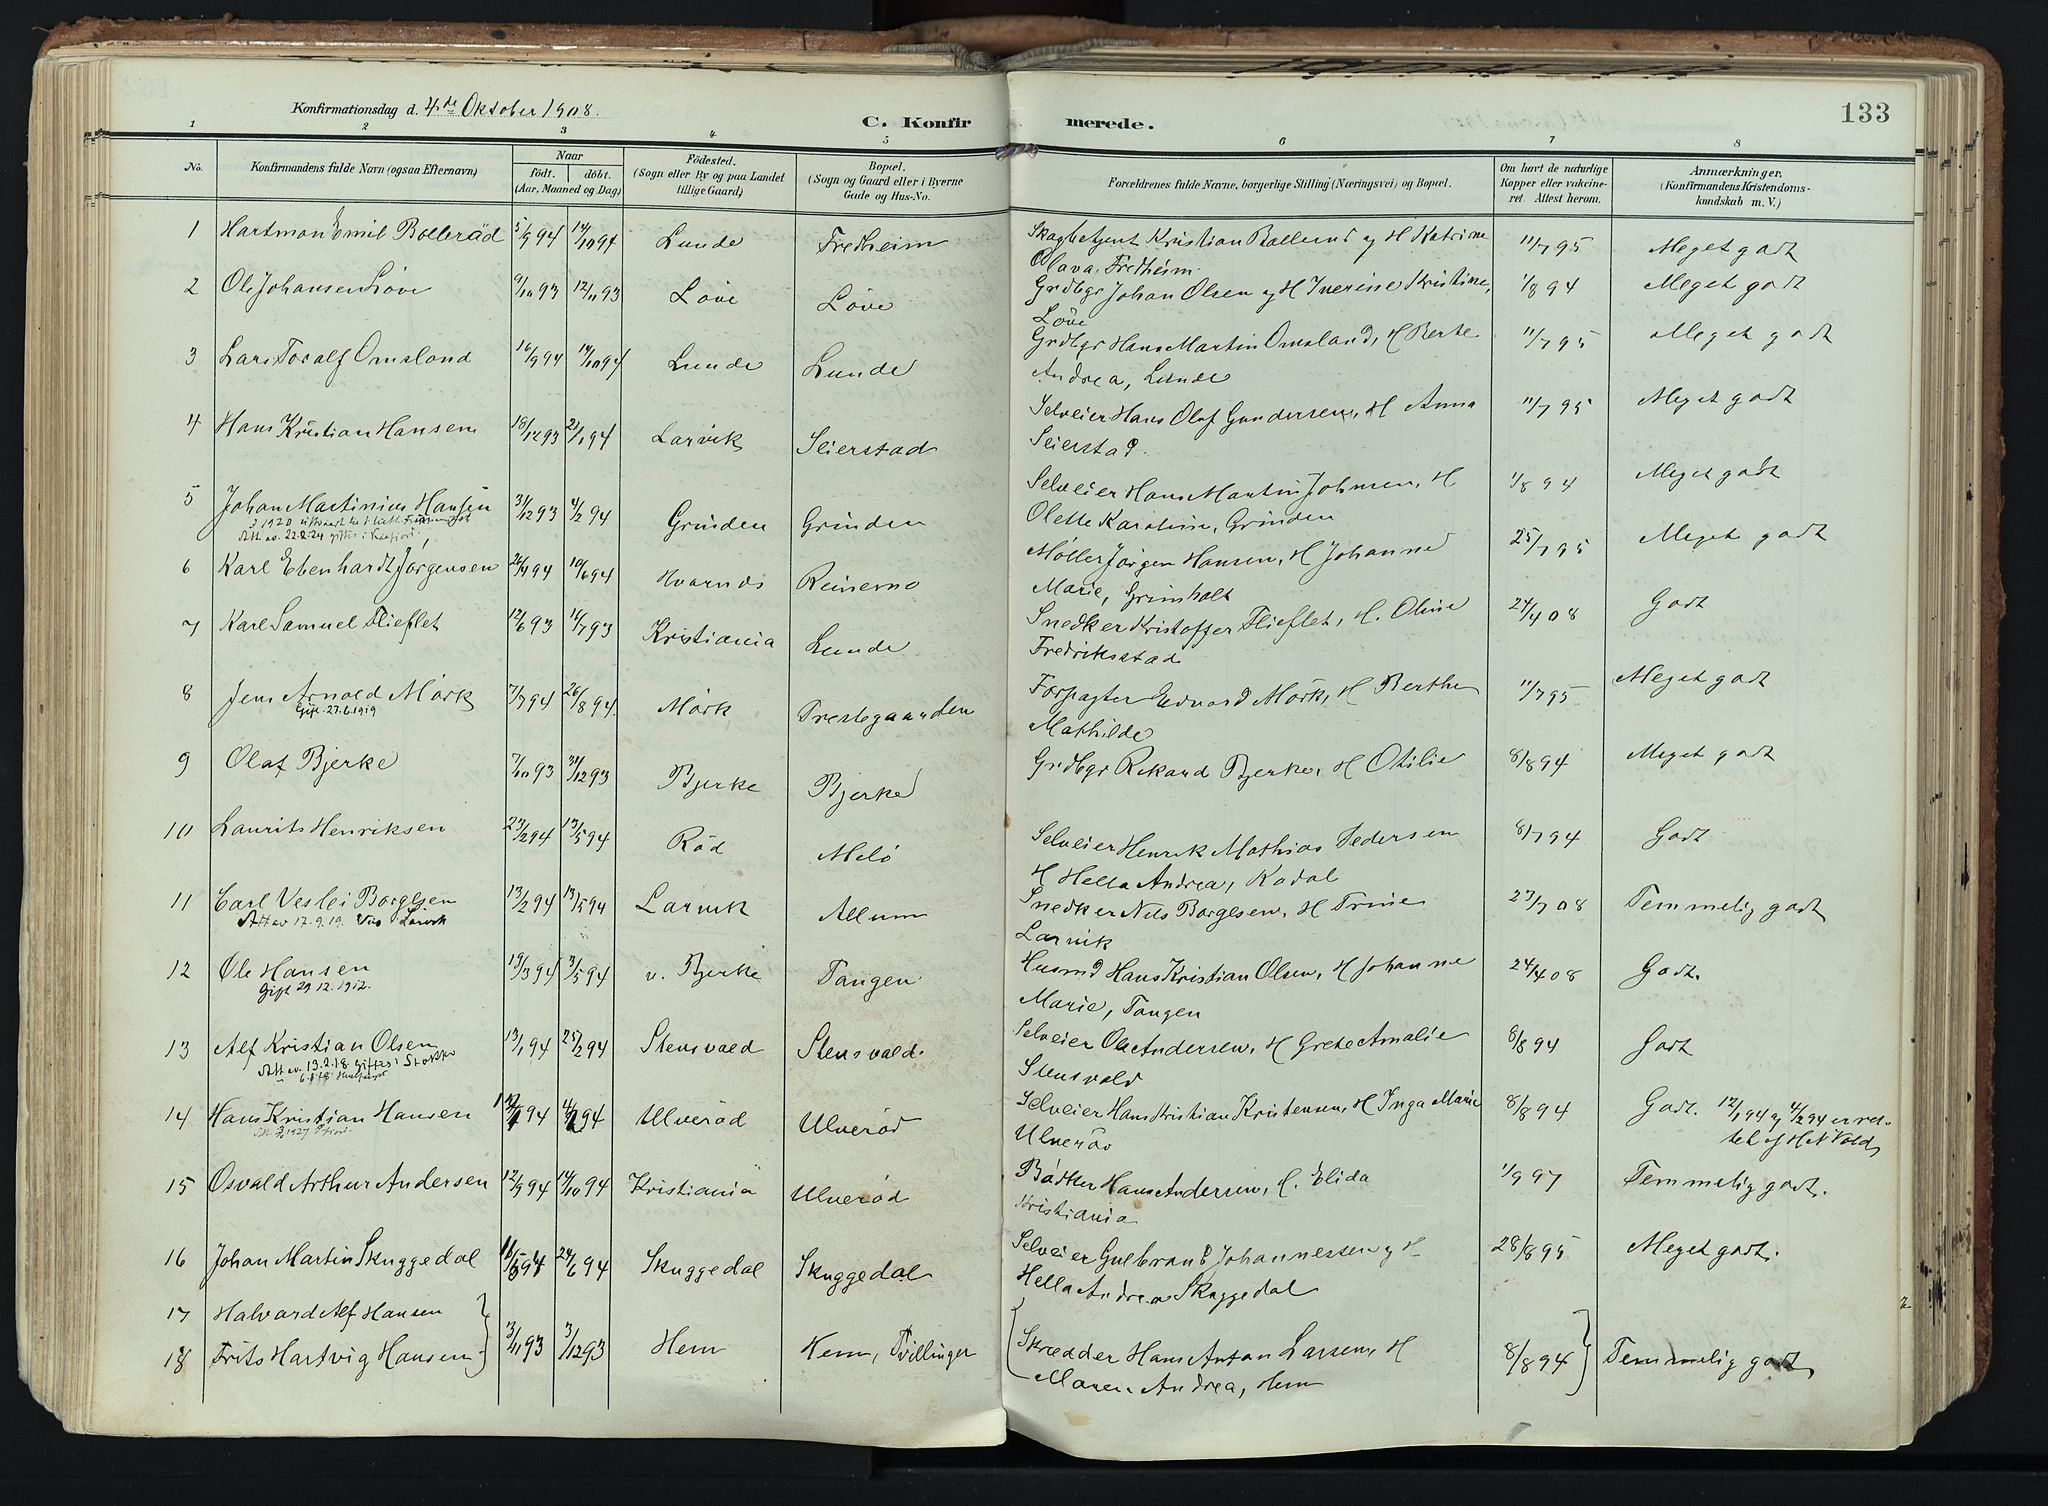 Konfirmationsdag d. 4de Oktober 1908.
C. Konfirmerede.
133
1 2 3 4 5 6 7 8
No.
Konfirmandens fulde Navn (ogsaa Efternavn)
Naar
födt. döbt.
(Aar, Maaned og Dag)
Födested.
(Sogn eller By og paa Landet
tillige Gaard)
Bopæl.
(Sogn og Gaard eller i Byerne
Gade og Hus-No.
Forældrenes fulde Navne, borgerlige Stilling (Næringsvei) og Bopæl.
Om havt de naturlige
Kopper eller vakcine-
ret. Attest herom.
Anmærkninger.
(Konfirmandens Kristendoms-
kundskab m. V.)
1 Hartman Emil Bolleröd 5/9 94 14/10 94 Lunde Fredheim Kristian Bolleröd og H Katrine 11/7 95 Meget godt
Olava, Fredheim
2 Ole Johansen Löve 9/10 93 12/11 93 Löve Löve Grdbgr Johan Olsen og H Inerine Kristine, 1/8 94 Meget godt
Löve
3 Lars Toralf Omsland 16/9 94 14/10 94 Lunde Lunde Grdbgr Hans Martin Omsland, H Berte 11/7 95 Meget godt
Andrea, Lunde
4 Hans Kristian Hansen 18/12 93 21/1 94 Larvik Seierstad Selveier Hans Olaf Gundersen, H Anna 11/7 95 Meget godt
Seierstad.
5 Johan Martinius Hansen 31/12 93 4/2 94 Grinden Grinden Selveier Hans Martin Johnsen, H 1/8 94 Meget godt
Att av. 22.2.24 giftes i
Olette Karoline, Grinden
6 Karl Ebenhardt Jørgensen 26/4 94 10/6 94 Hvarnes Reinemo Møller Jørgen Hansen, H Johanne 25/7 95 Meget godt
Marie, Grimholt
7 Karl Samuel Flieflet 12/6 93 16/7 93 Kristiania Lunde Snedker Kristoffer Flieflet, H. Oline 24/4 08 Godt
Fredriksstad
8 Jens Arnold Mörk 7/7 94 26/8 94. Mörk Prestegaarden Forpagter Edvard Mörk, H Berthe 11/7 95 Meget godt
Gift. 27.6.1919
Mathilde
9 Olaf Bjerke 7/10 93 31/12 93 Bjerke Bjerke Grdbgr Rikard Bjerke, H Otilie 8/8 94 Meget godt
10 Laurits Henriksen 23/2 94 13/5 94 Röd Melö Selveier Henrik Mathias Pedersen 8/7 94 Godt
H Hella Andrea, Kodal
11 Carl Veslei Borgesen 13/2 94 13/5 94 Larvik Allum Snedker Nils Borgesen, H Trine 27/7 08 Temmelig godt
Att av 17.9.19. Larvik
Larvik
12 Ole Hansen 19/3 94 3/5 94 v. Bjerke Tangen Husmd Hans Kristian Olsen, H Johanne 24/4 08 Godt.
Gift 29 12. 1912.
Marie, Tangen
13 Alf Kristian Olsen 13/1 94 25/2 94 Stensvold Stensvold Selveier Ole Andersen, H Grete Amalie 8/8 94 Godt
Att av. 13.2.18 giftes i Stokke
Stensvold
14 Hans Kristian Hansen 12/1 94 4/2 94 Ulveröd Ulveröd Selveier Hans Kristian Kristensen, H Inga Marie 8/8 94 Godt. 12/1 94 og 4/2 94 er ret-
Ulveröd
tet af H N Vold
15 Osvald Arthur Andersen 12/9 94 14/10 94 Kristiania Ulveröd Bödker Hans Andersen, H. Elida 1/9 97 Temmelig godt.
Kristiania
16 Johan Martin Skuggedal 16/5 94 24/6 94 Skuggedal Skuggedal Selveier Gulbrand Johannessen og H 28/8 95 Meget godt.
Hella Andrea Skuggedal
17 Halvard Alf Hansen
18 Frits Hartvig Hansen 3/11 93 3/12 93 Hem Hem, Tvillinger Skrædder Hans Anton Larsen, H 8/8 94 Temmelig godt
Maren Andrea, Hem